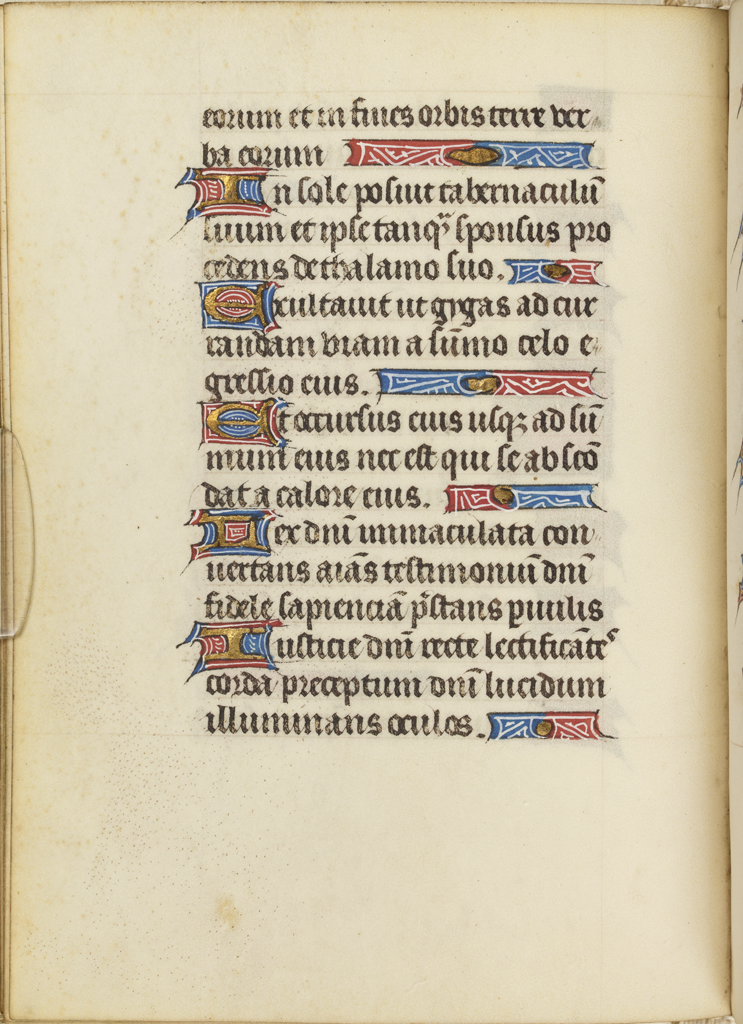 eorum et in fines orbis terre ver-
ba eorum
In sole posuit tabernaculū
suum et ipse tanqͣ sponsus pro
cedens de thalamo suo.
Exultauit ut gygas ad cur
randam viam a sūmo celo e-
gressio eius.
Et occursus eius usqꝫ ad sū
mum eius nec est qui se abscō
dat a calore eius.
Lex dnī immaculata con
uertans aīas testimoniuī dnī
fidele sapienciā p̄stans ꝑuulis
Iusticie dnī recte lectificātes
corda preceptum dnī lucidum
illuminans oculos.